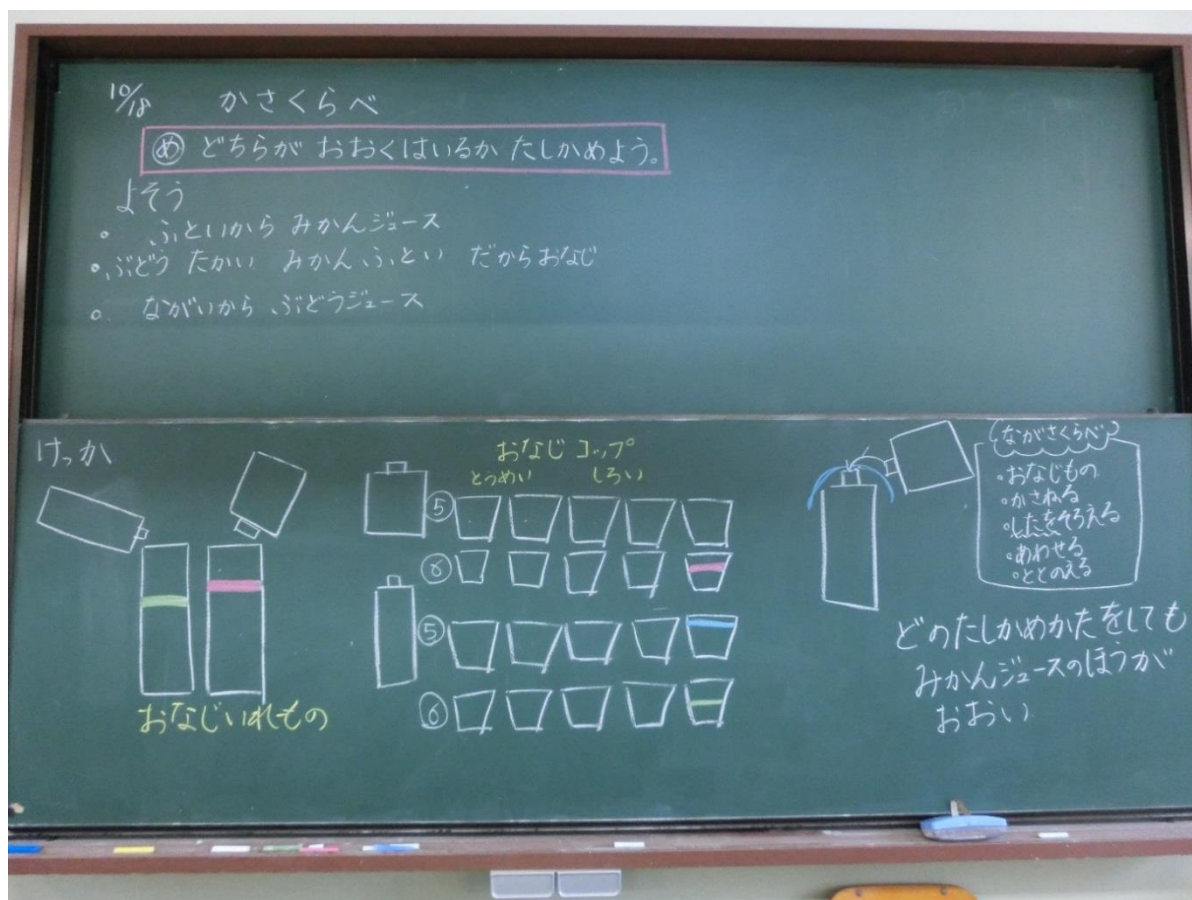 10/18 かさくらべ
め どちらが おおくはいるか たしかめよう。
よそう
• ふといから みかんジュース
• ぶどう たかい みかん ふとい だからおなじ
• ながいから ぶどうジュース
けっか
おなじいれもの
おなじ コップ
とうめい しろい
⑤
⑥
⑤
⑥
ながさくらべ
・おなじもの
・かさねる
・したをそろえる
・あわせる
・ととのえる
どのたしかめかたをしても
みかんジュースのほうが
おおい